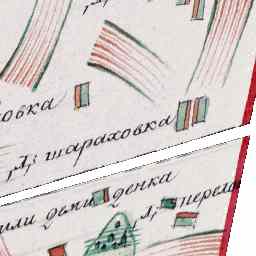 овка
Д; шараховка
или деми денка
Д; перело